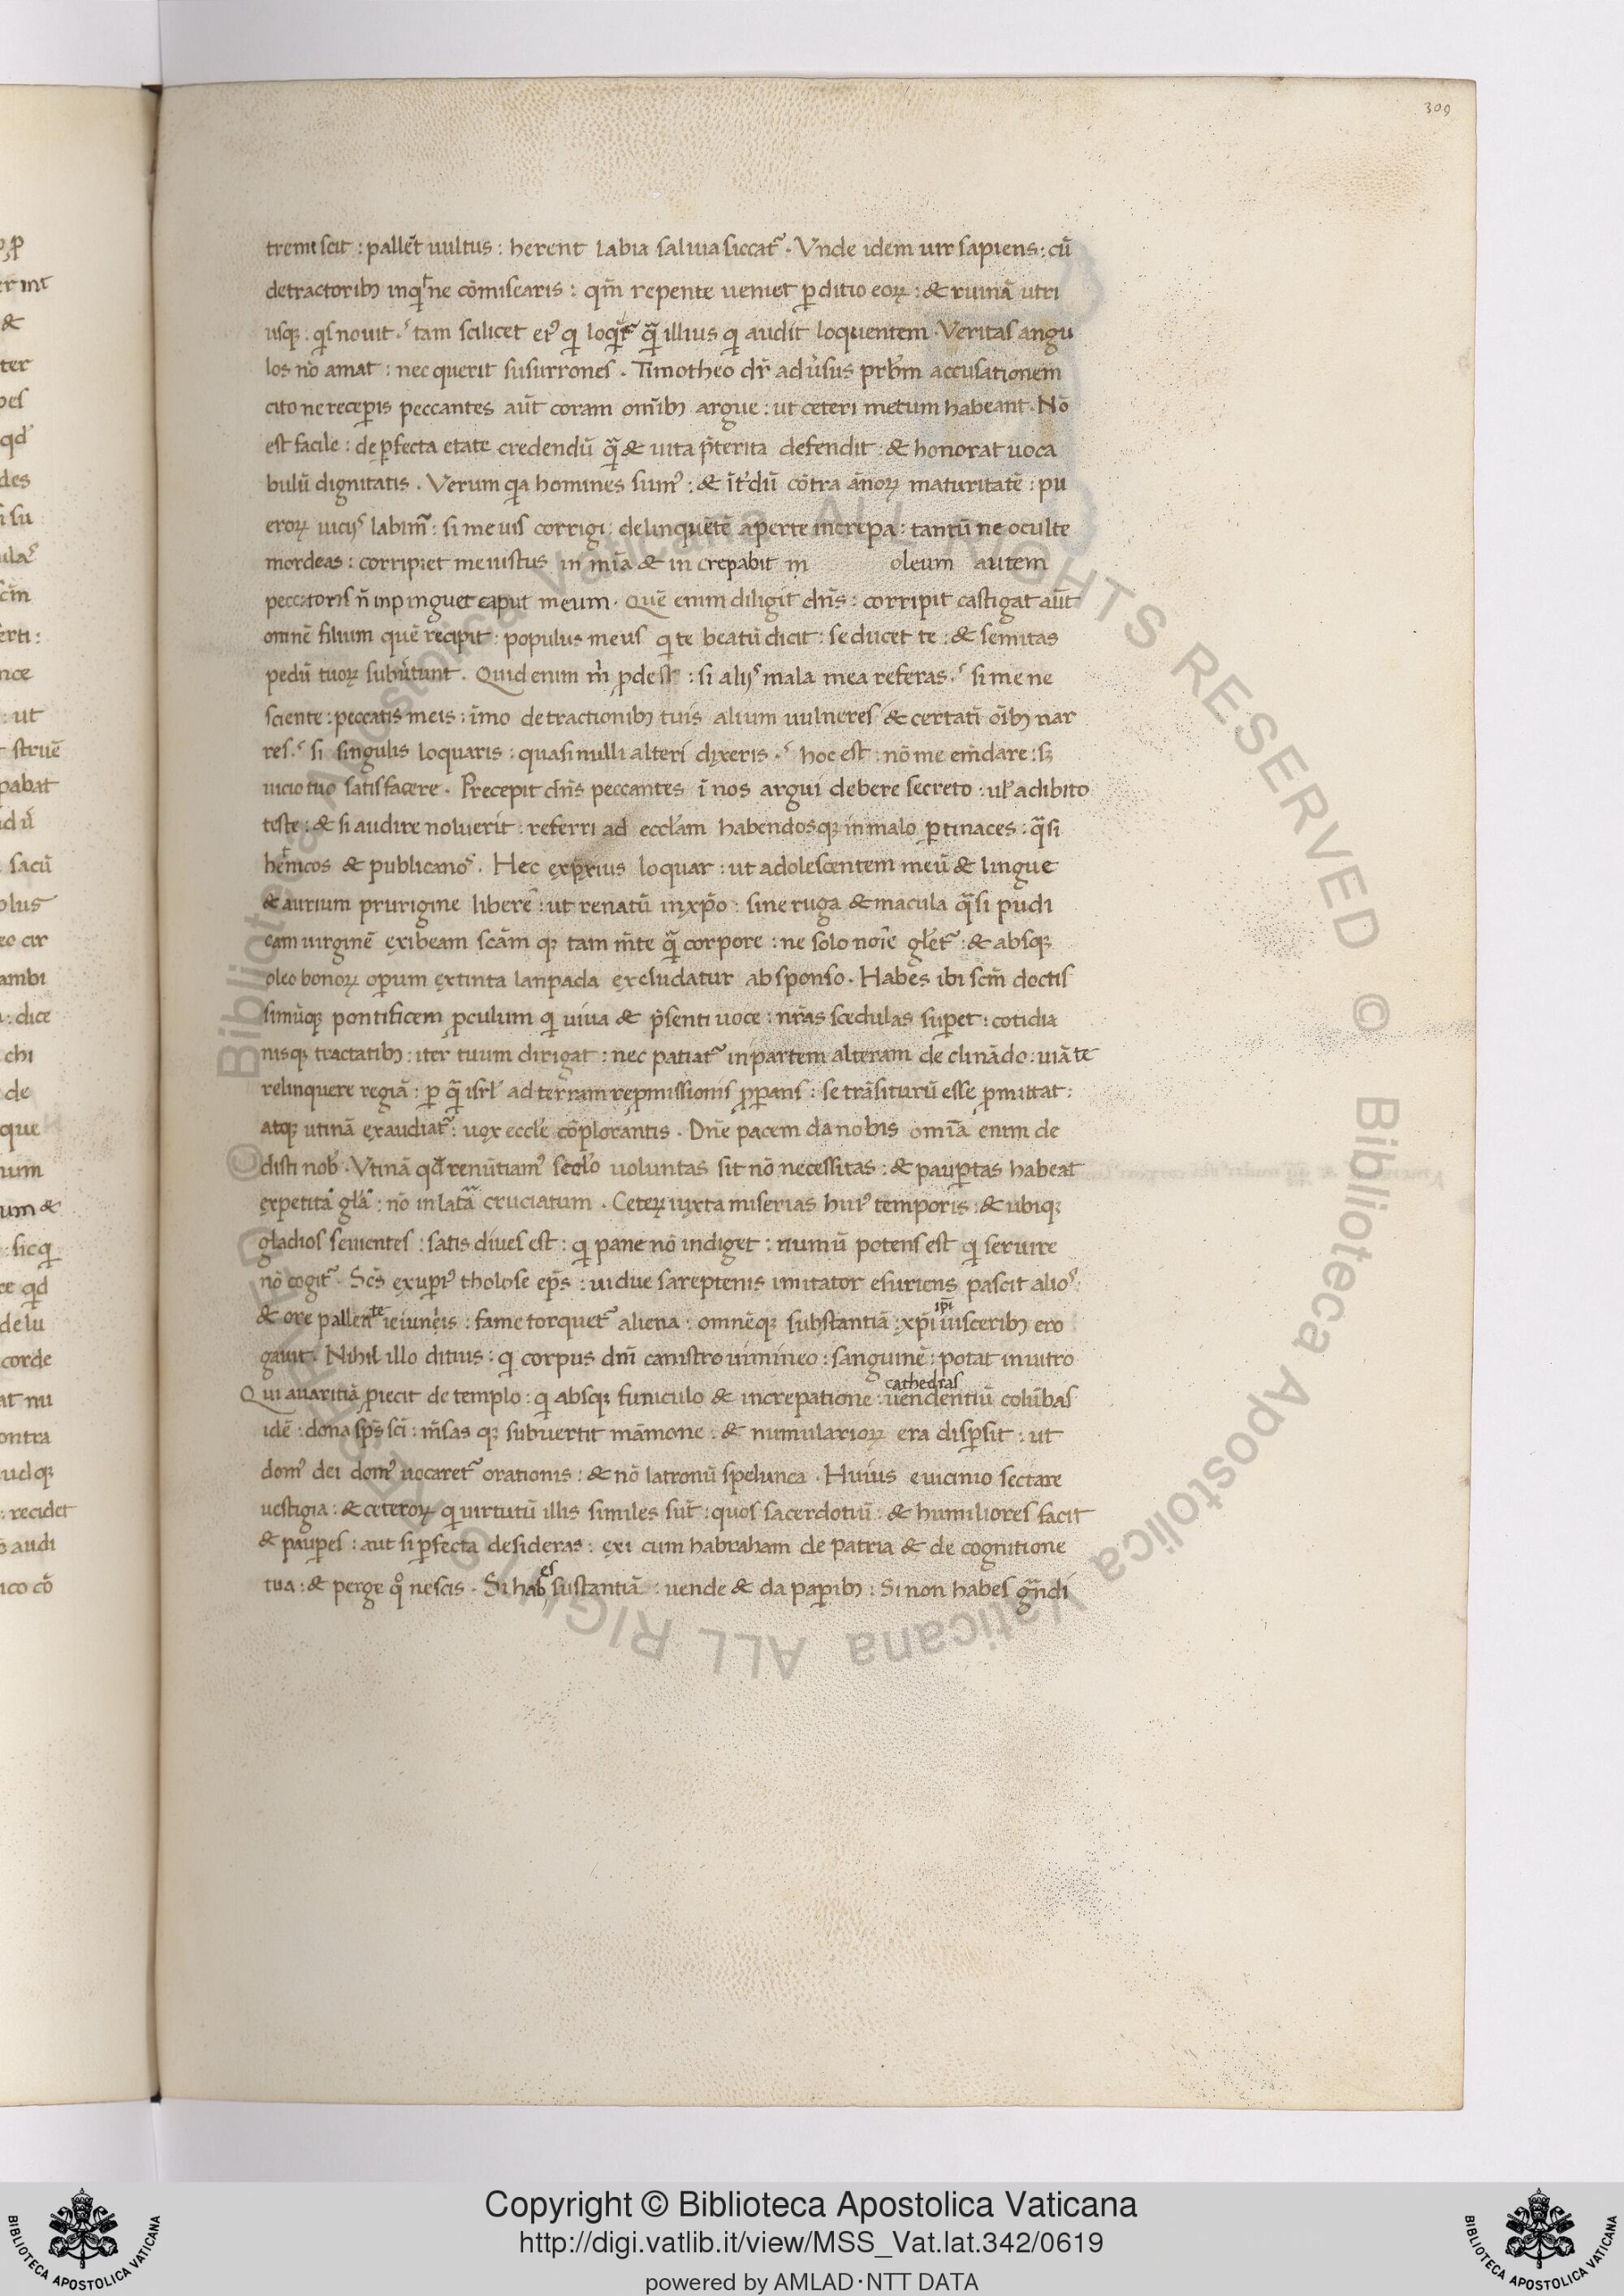 309
tremiscit : pallēt uultus : herent labia saliua siccat᷒ . Vnde idem uir sapiens : cū
detractorib; inqͥt ne cōmiscearis : qm̄ repente ueniet ꝑditio eoꝝ : & ruinā utri
usqꝫ . qͥs nouit . tam scilicet eiꝰ qͥ loqͥt᷒ qᷓ illius qͥ audit loquentem . Veritas angu
los nō amat : nec querit susurrones . Timotheo dr̄ adu̓sus prb̄m accusationem
cito ne receꝑis peccantes aūt coram omīb; argue : ut ceteri metum habeant . Nō
est facile : de ꝑfecta etate credendū qᷓ & uita p̄terita defendit : & honorat uoca
bulū dignitatis . Verum qͥa homines sumꝰ : & īt̓dū cōtra ānoꝝ maturitatē : pu
eroꝝ uicijs labim᷒ : si me uis corrigi : delinquētē aperte increpa : tantū ne oculte
mordeas : corripiet me iustus in mīa & in crepabit m oleum autem
peccatoris n̄ inpinguet caput meum . Quē enim diligit dn̄s : corripit castigat aūt
omnē filium quē recipit : populus meus qͥ te beatū dicit : seducet te : & semitas
pedū tuoꝝ subu̓tunt . Quid enim m̄ ꝓdest : si alijs mala mea referas . si me ne
sciente : peccatis meis : īmo detractionib; tuis alium uulneres & certatī oīb; nar
res . si singulis loquaris : quasi nulli alteri dixeris . hoc est : nō me em̄dare : sꝫ
uicio tuo satisfacere . Precepit dn̄s peccantes ī nos argui debere secreto : ul̓ adibito
teste : & si audire noluerit : referri ad eccl̄am habendosqꝫ in malo ꝑtinaces : qᷓsi
heͭnicos & publicanos . Hec exp̄xius loquar : ut adolescentem meū & lingue
& aurium prurigine liberē : ut renatū in xp̄o : sine ruga & macula qᷓsi pudi
cam uirginē exibeam scām qꝫ tam m̄te qᷓ corpore : ne solo noīe gl̄et᷒ : & absqꝫ
oleo bonoꝝ oꝑum extinta lanpada excludatur ab sponso . Habes ibi scm̄ doctis
simūqꝫ pontificem ꝓculum qͥ uiua & p̄senti uoce : nr̄as scedulas suꝑet : cotidia
nisqꝫ tractatib; : iter tuum dirigat : nec patiat᷒ in partem alteram declinādo : uiā te
relinquere regiā : ꝑ qᷓ isrl̄ ad terram repmissionis ꝓꝑans : se trāsiturū esse ꝓmittat :
atqꝫ utinā exaudiat᷒ : uox eccl̄e cōplorantis . Dn̄e pacem da nobis omīa enim de
disti nob̄ . Vtinā qd̓ renūtiamꝰ seclo uoluntas sit nō necessitas : & pauꝑtas habeat
expetitā gl̄ā : nō inlatā cruciatum . Ceteꝝ iuxta miserias huiꝰ temporis : & ubiqꝫ
gladios seuientes : satis diues est : qͥ pane nō indiget : nimiū potens est qͥ seruire
nō cogit᷒ . Scs̄ exuperꝰ tholose ep̄s : uidue sareptenis imitator esuriens pascit alios
& ore pallente ieiuneis : fame torquet᷒ aliena : omnēqꝫ substantiā : xp̄i ip̄i uisceribus ero
gauit . Nihil illo ditius : qͥ corpus dn̄i canistro uimineo : sanguinē : potat in uitro
Qui auaritiā ꝓiecit de templo : qͥ absqꝫ funiculo & increpatione : cathedras uendentiū colūbas
idē : dona sp̄s sci : m̄sas qꝫ subuertit māmone : & numularioꝝ era disꝑsit : ut
domꝰ dei domꝰ uocaret᷒ orationis : & nō latronū spelunca . Huius e uicinio sectare
uestigia : & ceteroꝝ qͥ uirtutū illis similes sūt : quos sacerdotiū : & humiliores facit
& pauꝑes : aut si ꝑfecta desideras : exi cum habraham de patria & de cognitione
tua : & perge qͦ nescis . Si habes sustantiā : uende & da paꝑib; : Si non habes gᷓndi
Copyright © Biblioteca Apostolica Vaticana
http://digi.vatlib.it/view/MSS_Vat.lat.342/0619
powered by AMLAD·NTT DATA
BIBLIOTECA APOSTOLICA VATICANA
BIBLIOTECA APOSTOLICA VATICANA